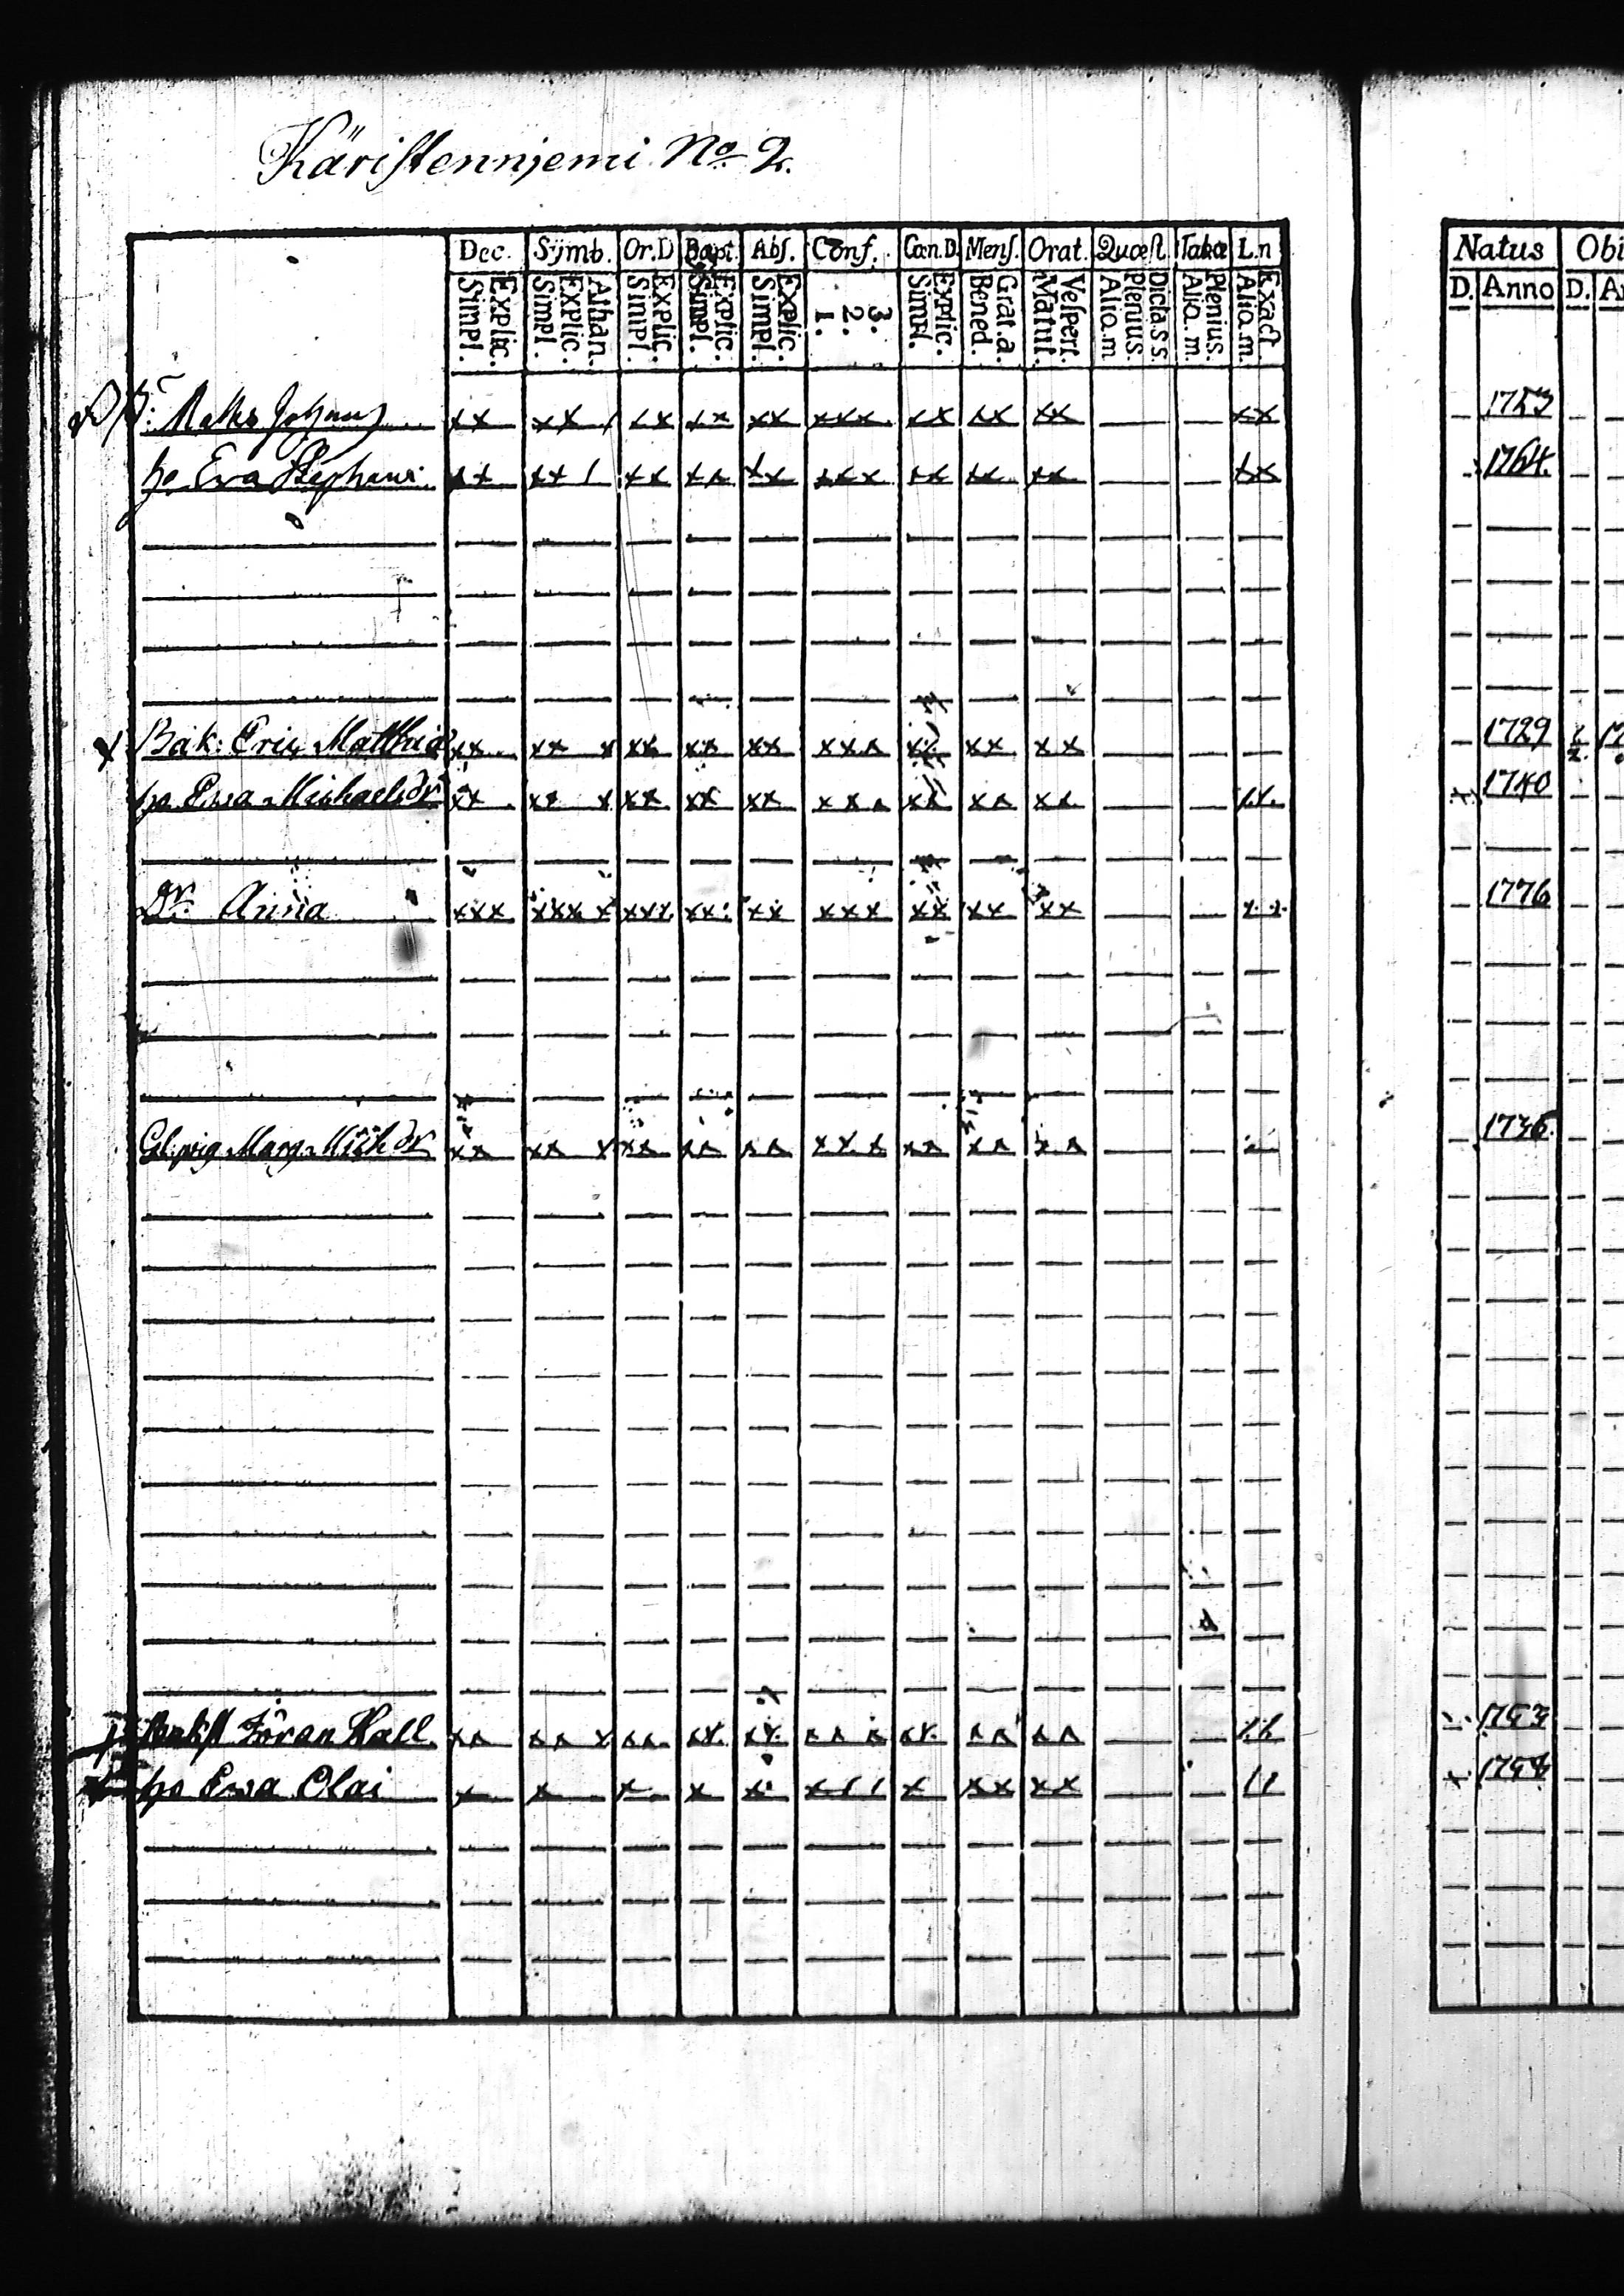 Käristenniemi No 2.
Dec. Symb. Or.D Bapt. Abs. Conf. Cæn.D. Mens. Orat. Quæst. Tabæ L.n Natus Obi
Explic. Simpl. Athan. Explic. Simpl. Explic. Simpl. Explic. Simpl. Explic. Simpl. 3. 2. 1. Explic. Simpl. Grat.a. Bened. Vespert. Matut. Dicta.s.s. Plenius. Alio.m Plenius. Alia.m. Exact. Alio.m. D. Anno D. A
Johans xx xx / xx xx xx xxx xx xx xx xx 1753
ho Eva Stephans xx xx / xx xx xx xxx xx xx xx xx 1764.
x Bak: Eric Matthiæ xx xx x xx xx xx xxx xx xx xx 1729
ho Ewa Michaelsdr xx xx x xx xx xx xxx xx xx xx xx 1740
Dr. Anna xxx xxx x xxx xx xx xxx xx xx xx xx 1776
Marg. Mich dr xx xx x xx xx xx xxx xx xx xx 1736.
Jöran Hall xx xx x xx xx xx xxx xx xx xx
ho Ewa Olai x x x x x x / / x xx xx / /